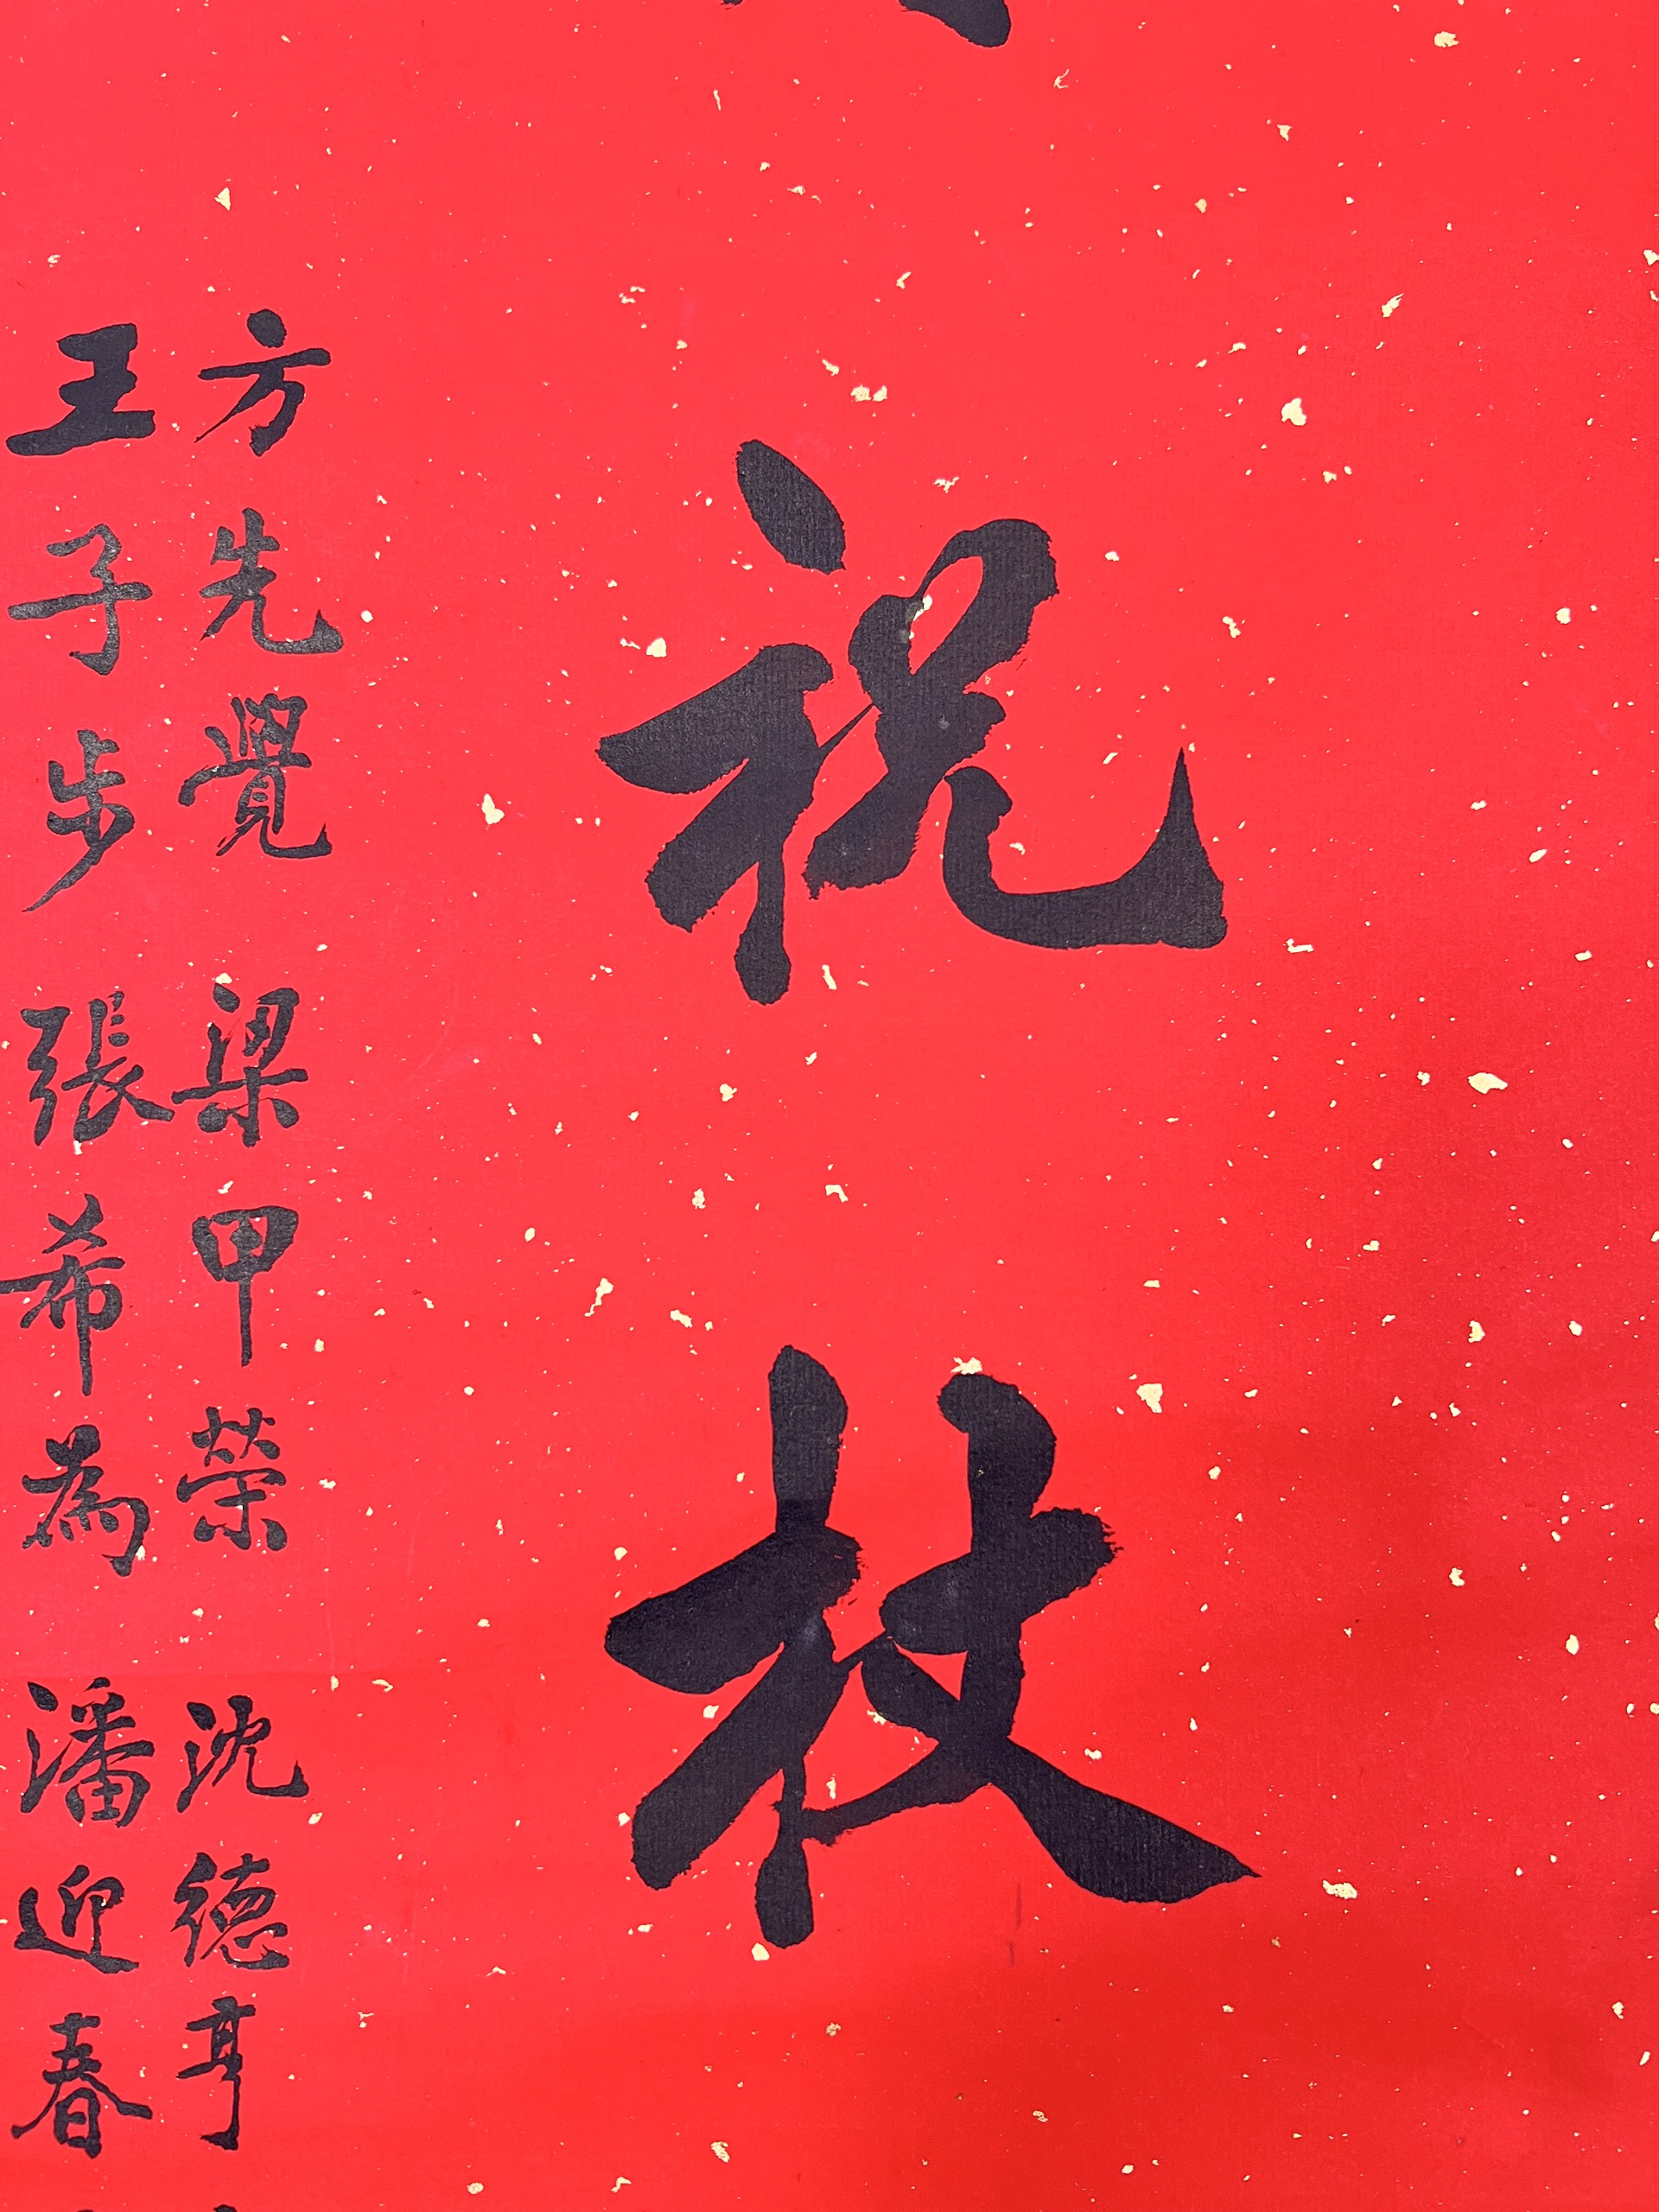 祝杖
方先覺 梁甲榮 沈德亨
王子步 張希為 潘迎春